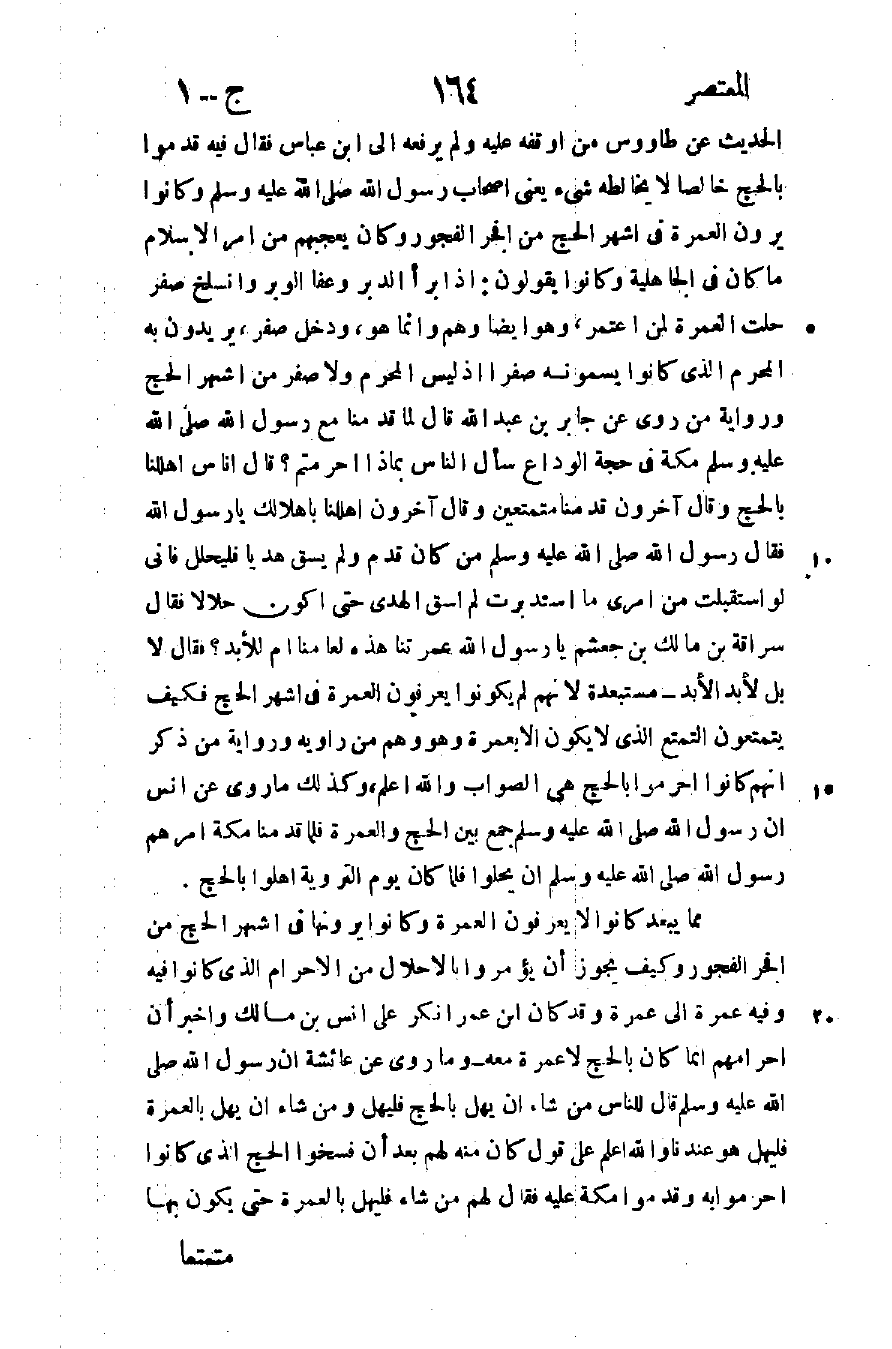 المعتصر ١٦٤ ج--١
الحديث عن طاووس من اوقفه عليه ولم يرفعه الى ابن عباس فقال فيه قدموا
بالحج خالصا لا يخالطه شىء يعنى اصحاب رسول الله صلى الله عليه وسلم وكانوا
يرون العمرة فى اشهر الحج من افجر الفجور وكان يعجبهم من امر الاسلام
ما كان فى الجاهلية وكانوا يقولون: اذا برأ الدبر وعفا الوبر وانسلخ صفر
حلت العمرة لمن اعتمر، وهو ايضا وهم وانما هو، ودخل صفر، يريدون به ٥
المحرم الذى كانوا يسمونه صفرا اذ ليس المحرم ولا صفر من اشهر الحج
ورواية من روى عن جابر بن عبد الله قال لما قدمنا مع رسول الله صلى الله
عليه وسلم مكة فى حجة الوداع سأل الناس بماذا احرمتم؟ قال اناس اهللنا
بالحج وقال آخرون قدمنا متمتعين وقال آخرون اهللنا باهلالك يا رسول الله
فقال رسول الله صلى الله عليه وسلم من كان قدم ولم يسق هديا فليحلل فانى ١٠
لو استقبلت من امرى ما استدبرت لم اسق الهدى حتى اكون حلالا فقال
سراقة بن مالك بن جعشم يا رسول الله عمرتنا هذه لعامنا ام للأبد؟ فقال لا
بل لأبد الأبد – مستبعدة لانهم لم يكونوا يعرفون العمرة فى اشهر الحج فكيف
يتمتعون التمتع الذى لا يكون الا بعمرة وهو وهم من راويه ورواية من ذكر
انهم كانوا احرموا بالحج هي الصواب والله اعلم، وكذلك ما روى عن انس ١٥
ان رسول الله صلى الله عليه وسلم جمع بين الحج والعمرة فلما قدمنا مكة امرهم
رسول الله صلى الله عليه وسلم ان يحلوا فلما كان يوم التروية اهلوا بالحج .
مما يبعد كانوا لا يعرفون العمرة وكانوا يرونها فى اشهر الحج من
افجر الفجور وكيف يجوز أن يؤمروا بالاحلال من الاحرام الذى كانوا فيه
وفيه عمرة الى عمرة وقد كان ابن عمر انكر على انس بن مالك واخبر أن ٢٠
احرامهم انما كان بالحج لا عمرة معه – وما روى عن عائشة ان رسول الله صلى
الله عليه وسلم قال للناس من شاء ان يهل بالحج فليهل ومن شاء ان يهل بالعمرة
فليهل هو عندنا والله اعلم على قول كان منه لهم بعد أن فسخوا الحج الذى كانوا
احرموا به وقدموا مكة عليه فقال لهم من شاء فليهل بالعمرة حتى يكون بها
متمتعا